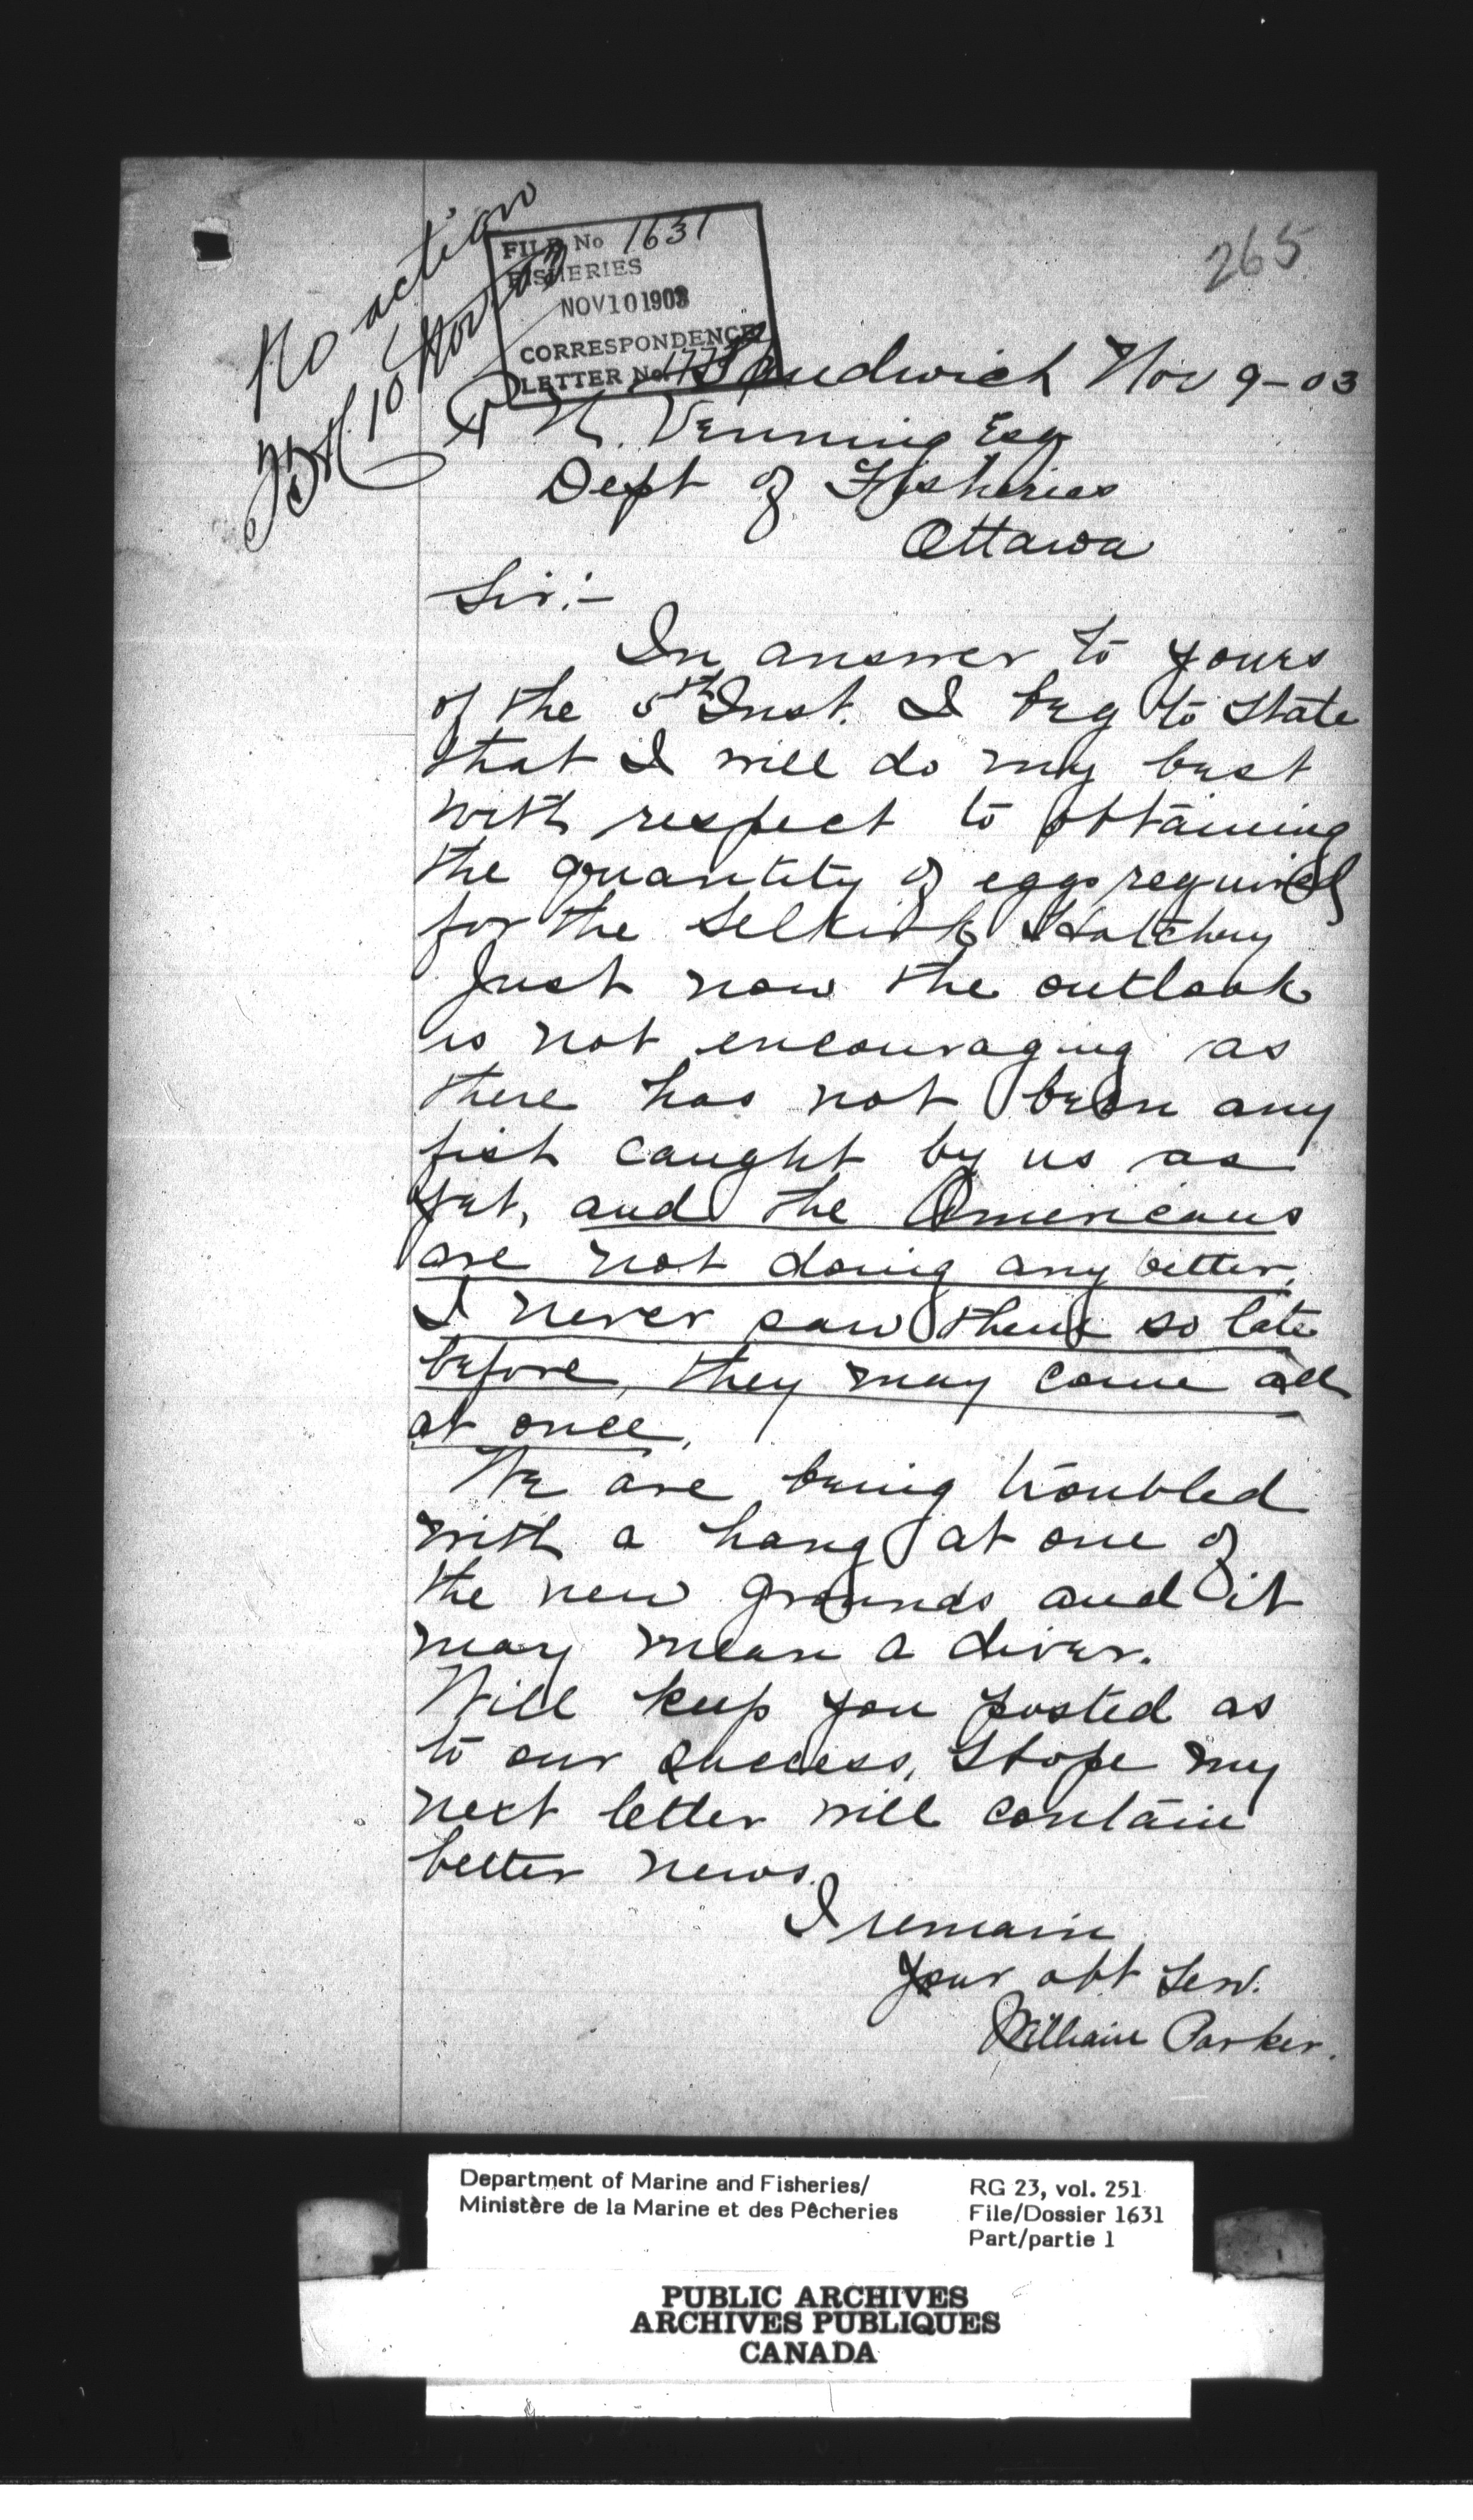 265
No action
10 Nov 03
FILE No 1631
FISHERIES
NOV 10 1903
CORRESPONDENCE
LETTER No.
Sandwich Nov 9-03
R. N. Venning Esq
Dept of Fisheries
Ottawa
Sir:-
In answer to yours
of the 5th Inst. I beg to state
that I will do my best
with respect to obtaining
the quantity of eggs required
for the Selkirk Hatchery
Just now the outlook
is not encouraging as
there has not been any
fish caught by us as
yet, and the Americans
are not doing any better.
I never saw them so late
before, they may come all
at once.
We are being troubled
with a hang at one of
the new grounds and it
may mean a diver.
Will keep you posted as
to our success, Hope my
next letter will contain
better news.
I remain
Your obt Serv.
William Parker.
Department of Marine and Fisheries/
Ministère de la Marine et des Pêcheries
RG 23, vol. 251
File/Dossier 1631
Part/partie 1
PUBLIC ARCHIVES
ARCHIVES PUBLIQUES
CANADA